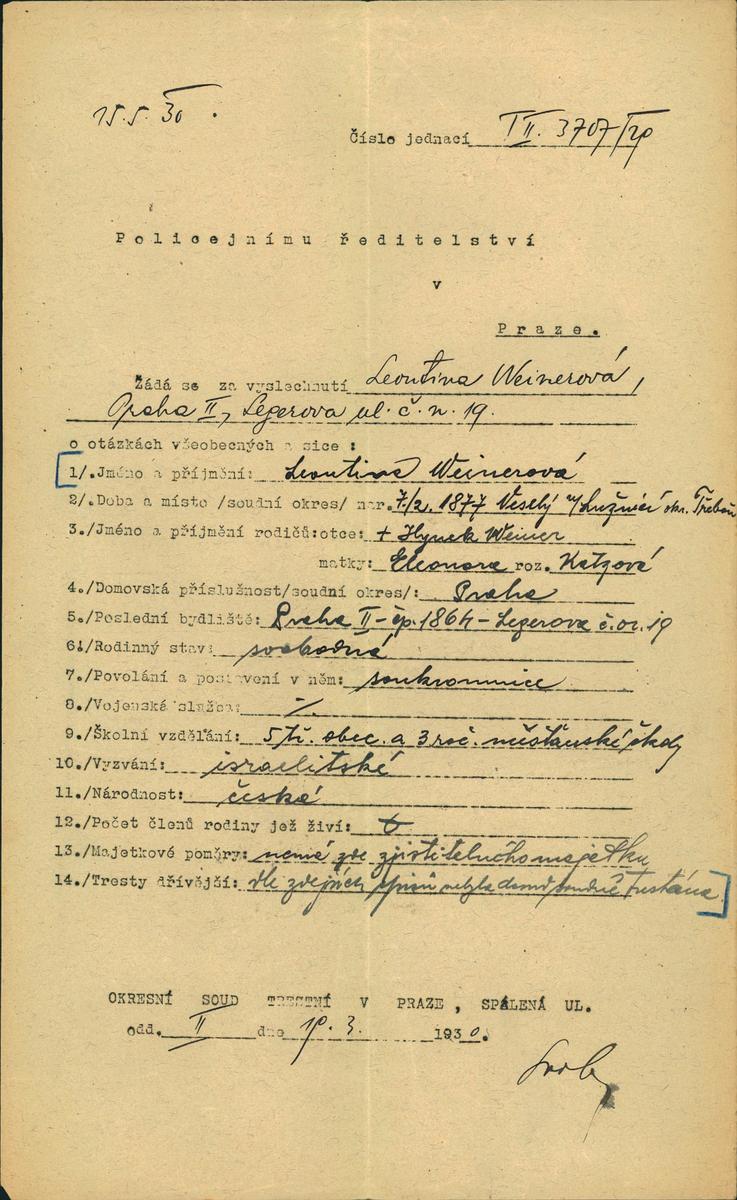 15.5.30.
Číslo jednací TII. 3707/30
Policejnímu ředitelství
v
Praze.
Žádá se za vyslechnutí Leontina Weinerová,
Praha II, Legerova ul. č. n. 19.
o otázkách všeobecných a sice :
1/.Jméno a příjmění: Leontina Weinerová
2/.Doba a místo /soudní okres/ nar. 7/2. 1877 Veselý n/Lužnicí okr. Třeboň
3./Jméno a příjmění rodičů:otce: + Hynek Weiner
matky: Eleonora roz. Katzová
4./Domovská příslušnost/soudní okres/: Praha
5./Poslední bydliště: Praha II - čp. 1864 - Legerova č. or. 19
6./Rodinný stav: svobodná
7./Povolání a postavení v něm: soukromnice
8./Vojenská služba: /.
9./Školní vzdělání: 5 tř. obec. a 3 roč. měšťanské školy
10./Vyzvání: israelitské
11./Národnost: česká
12./Počet členů rodiny jež živí:
13./Majetkové poměry: nemá zde zjistitelného majetku
14./Tresty dřívější: dle zdejších spisů nebyla dosud soudně trestána.
OKRESNÍ SOUD TRESTNÍ V PRAZE, SPÁLENÁ UL.
odd. II dne 10. 3. 1930.